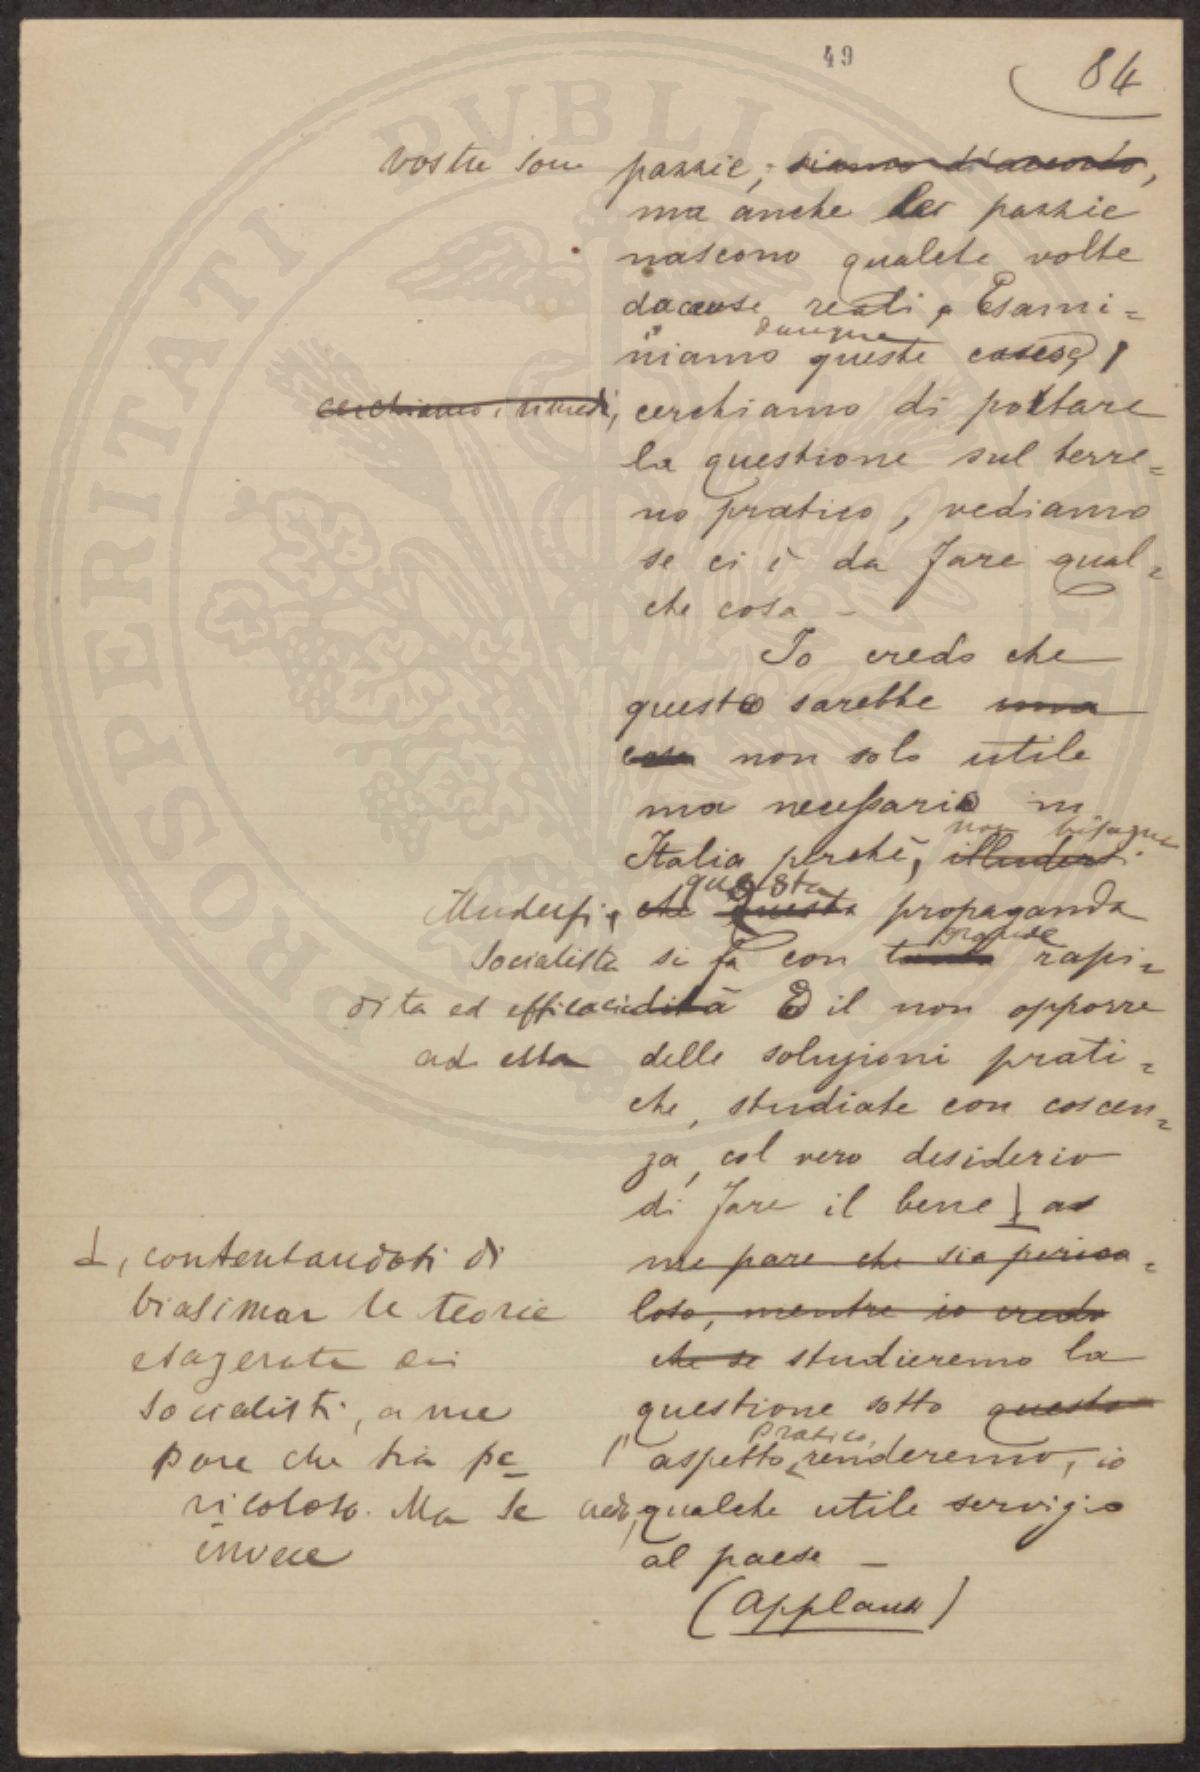 49
84
vostre son pazzie, siamo d'accordo,
ma anche le pazzie
nascono qualche volte
da cause reali, Esami=
dunque
niamo queste cause,
cerchiamo i rimedi, cerchiamo di portare
la questione sul terre=
no pratico, vediamo
se ci è da fare qual=
che cosa -
Io credo che
questo sarebbe una
cosa non solo utile
ma necessario in
non bisogna
Italia perchè, illudersi
questa
illudersi, che questa propaganda
grande
socialista si fa con tanta rapi=
dita ed efficacia dità E il non opporre
ad essa delle soluzioni prati=
che, studiate con coscen=
za, col vero desiderio
di fare il bene, a
me pare che sia perico=
loso, mentre io credo
che se studieremo la
questione sotto questo
pratico,
l' aspetto, renderemo, io
credo, qualche utile servizio
al paese -
(Applausi)
, contentandosi di
biasimar le teorie
esagerate dei
socialisti, a me
pare che sia pe=
ricoloso. Ma se
invece
PROSPERITATI PVBLICAE